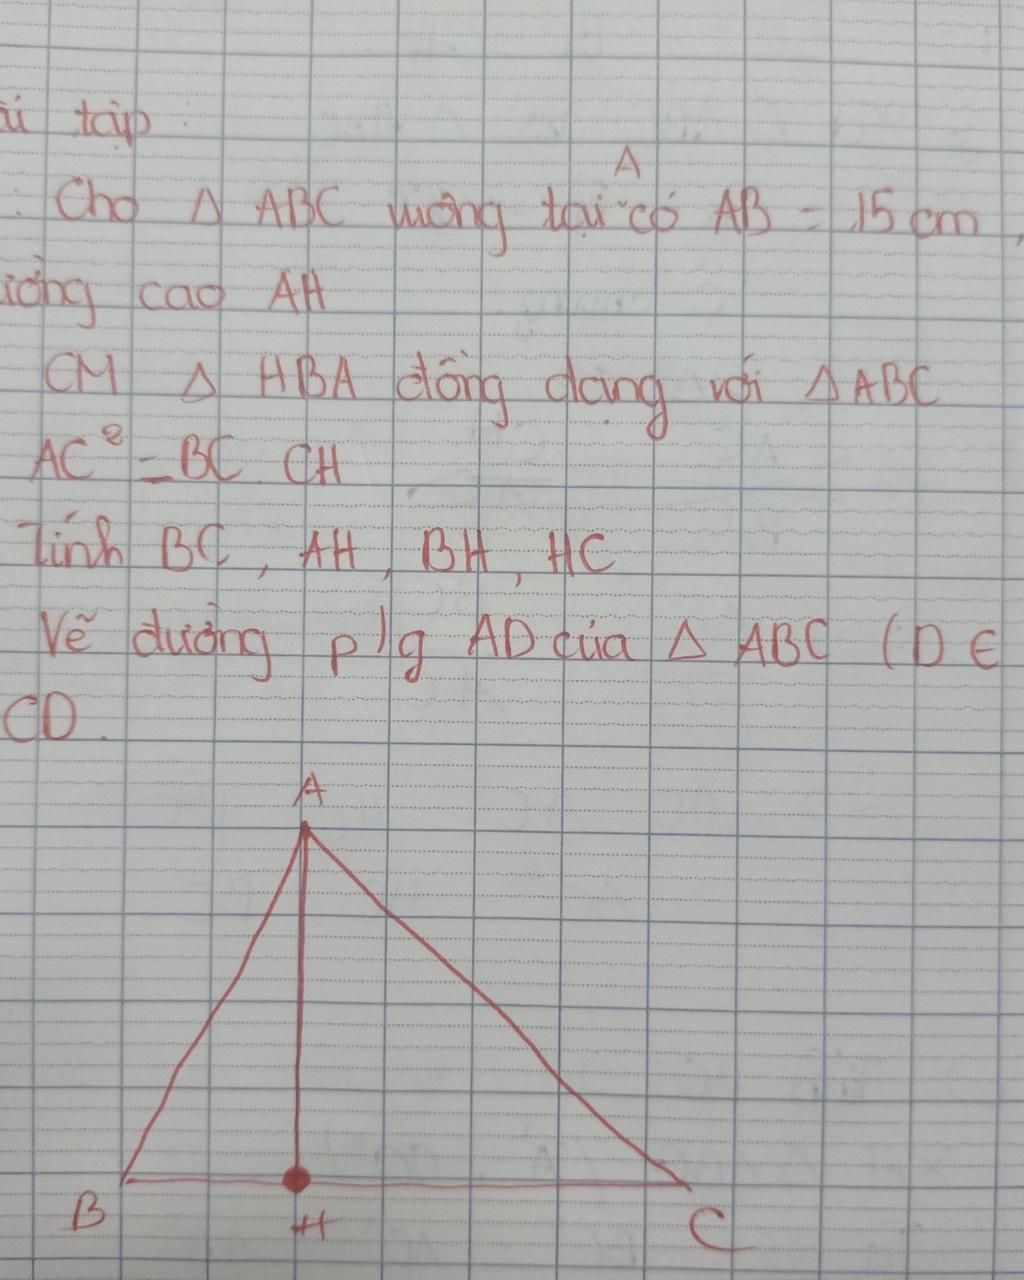 tập
Cho Δ ABC vuông tại A có AB = 15 cm,
cao AH
CM Δ HBA đồng dạng với Δ ABC
AC² = BC. CH
Tính BC, AH, BH, HC
Vẽ đường p/g AD của Δ ABC (D ∈
CD.
A
B
H
C